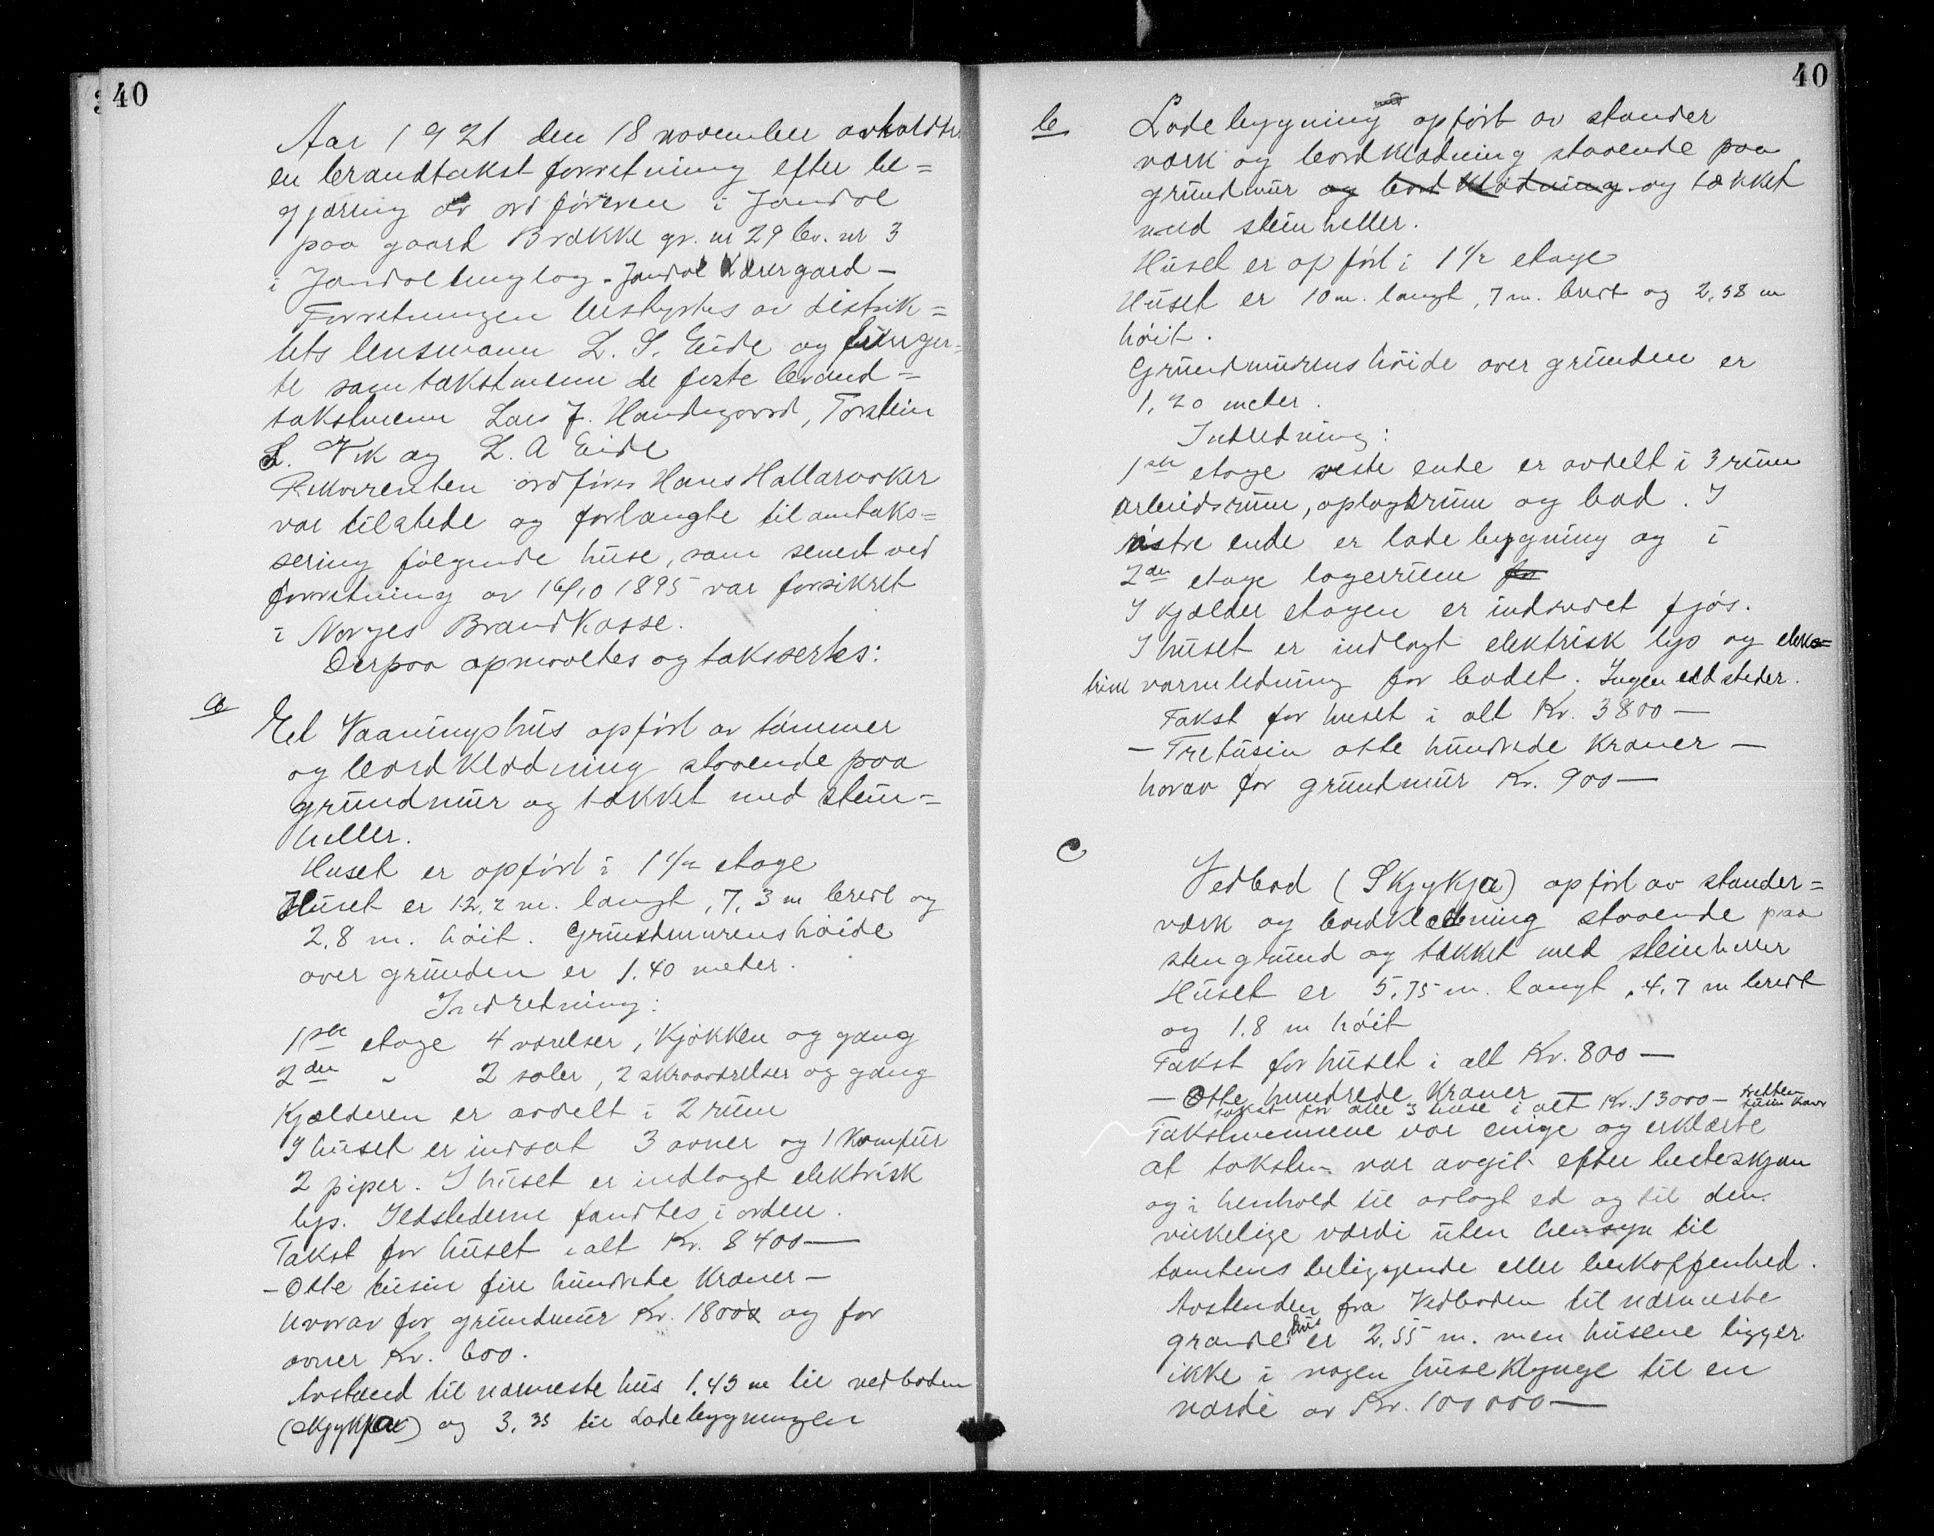 40
Aar 1921 den 18 november avholdtes
en brandtakst forretning efter be=
gjæring av ordføreren i Jondal
paa gaard Brække gr. nr 29 br. nr 3
i Jondal tinglag - Jondal
Forretningen bestyrtes av distrik=
tets lensmann L. S. Eide og funger=
te som takstmenn de faste brand=
takstmenn Lars J. Handegaard, Torstein
L. Vik og L. A Eide
Rekvirenten ordfører Hans Hallaraaker
var tilstede og forlangte til omtaks=
sering følgende huse, som senest ved
forretning av 16/10 1895 var forsikret
i Norges Brandkasse.
Derpaa opmaaltes og taksertes:
a
Et Vaaningshus opført av tømmer
og bordklædning staaende paa
grundmur og tækket med stein=
heller.
Huset er opført i 1 1/2 etage
Huset er 12,2 m. langt, 7,3 m bredt og
2,8 m. høit. Grundmurenshøide
over grunden er 1,40 meter.
Indretning:
1ste etage 4 værelser, kjøkken og gang
2den " 2 saler, 2 skraaværelser og gang
Kjælderen er avdelt i 2 rum
I huset er indsat 3 ovner og 1 komfur
2 piper. I huset er indlagt elektrisk
lys. Ildstederne fandtes i orden.
Takst for huset i alt Kr. 8400 —
- Otte tusin fire hundrede Kroner —
hvorav for grundmur Kr. 1800 og for
ovner Kr. 600.
Avstand til nærmeste hus 1,45 m til vedboden
(Skjykja) og 3,35 til Ladebygningen
40
b
Ladebygning opført av stander
værk og bordklædning staaende paa
grundmur og bordklædning og tækket
med steinheller.
Huset er opført i 1 1/2 etage
Huset er 10 m. langt, 7 m. bredt og 2,38 m
høit.
Grundmurens høide over grunden er
1,20 meter.
Indredning:
1ste etage veste ende er avdelt i 3 rum
arbeidsrum, oplagsrum og bad. I
østre ende er ladebygning og i
2den etage lagerrum
I kjælder etagen er indredet fjøs.
I huset er indlagt elektrisk lys og elek=
trisk varmeledning for badet. Ingen ildsteder.
Takst for huset i alt Kr. 3800 —
— Tretusin otte hundrede Kroner —
horav for grundmur Kr. 900 —
C
Vedbod (Skjykja) opført av stander=
værk og bordklædning staaende paa
stengrund og tækket med steinheller
Huset er 5,75 m. langt, 4,7 m bredt
og 1.8 m høit
Takst for huset i alt Kr. 800 —
— Otte hundrede Kroner —
Takst for alle 3 huse i alt Kr. 13000 - tretten
tusin kroner
Takstmennene var enige og erklærte
at taksten var avgit efter besteskjøn
og i henhold til avlagt ed og til den
virkelige værdi uten hensyn til
tomtens beliggende eller beskaffenhed.
Avstanden fra Vedboden til nærmeste
grandehus er 2,55 m. men husene ligger
ikke i nogen huseklynge til en
værdi av Kr. 100 000 —